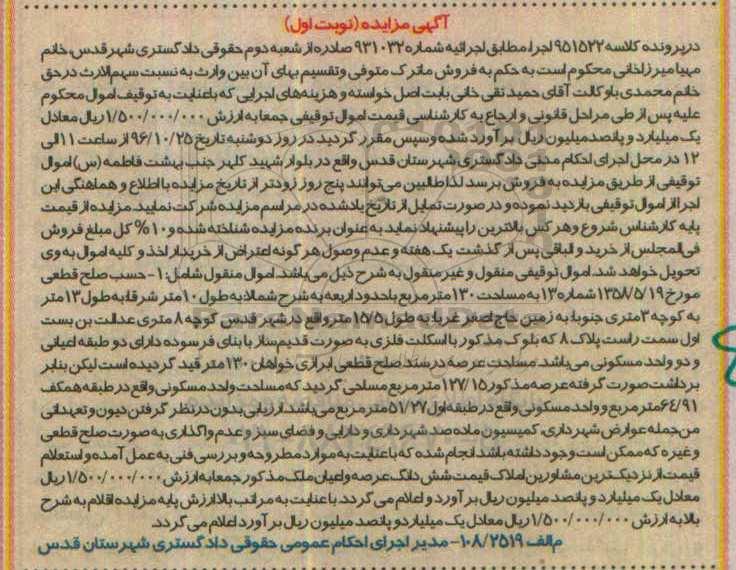 آگهی مزایده (نوبت اول)
در پرونده کلاسه ۹۵۱۵۲۲ اجرا، مطابق اجرائیه شماره ۹۳۱۰۳۲ صادره از شعبه دوم حقوقی دادگستری شهر قدس، خانم
مهیا میرزاخانی محکوم است به حکم به فروش ماترک متوفی وتقسیم بهای آن بین وراث به نسبت سهم الارث در حق
خانم محمدی با وکالت آقای حمید تقی خانی بابت اصل خواسته و هزینه های اجرایی که باعنایت به توقیف اموال محکوم
علیه پس از طی مراحل قانونی و ارجاع به کارشناسی قیمت اموال توقیفی جمعا به ارزش ۱/۵۰۰/۰۰۰/۰۰۰ ریال معادل
یک میلیارد و پانصد میلیون ریال برآورد شده وسپس مقرر گردید در روز دوشنبه تاریخ ۹۶/۱۰/۲۵ از ساعت ۱۱ الی
۱۲ در محل اجرای احکام مدنی دادگستری شهرستان قدس واقع در بلوار شهید کلهر جنب بهشت فاطمه (س) اموال
توقیفی از طریق مزایده به فروش برسد لذا طالبین می توانند پنج روز زودتر از تاریخ مزایده با اطلاع و هماهنگی این
اجرا از اموال توقیفی بازدید نموده و در صورت تمایل از تاریخ یادشده در مراسم مزایده شرکت نمایید. مزایده از قیمت
پایه کارشناس شروع وهر کس بالاترین را پیشنهاد نماید به عنوان برنده مزایده شناخته شده و ۱۰% کل مبلغ فروش
فی المجلس از خرید و الباقی پس از گذشت یک هفته و عدم وصول هر گونه اعتراض از خریدار اخذ و کلیه اموال به وی
تحویل خواهد شد. اموال توقیفی منقول و غیر منقول به شرح ذیل می باشد. اموال منقول شامل: ۱- حسب صلح قطعی
مورخ ۱۳۵۸/۵/۱۹ شماره ۱۳ به مساحت ۱۳۰ متر مربع با حدود اربعه به شرح شمالا به طول ۱۰ متر شرقا به طول ۱۳ متر
به کوچه ۳ متری جنوبا: به زمین حاج اصغر غربا به طول ۱۵/۵ متر واقع در شهر قدس کوچه ۸ متری عدالت بن بست
اول سمت راست پلاک ۸ که بلوک مذکور با اسکلت فلزی به صورت قدیم ساز با بنای فرسوده دارای دو طبقه اعیانی
و دو واحد مسکونی می باشد. مساحت عرصه در سند صلح قطعی ابرازی خواهان ۱۳۰ متر قید گردیده است لیکن بنابر
برداشت صورت گرفته عرصه مذکور ۱۲۷/۱۵ متر مربع مساحی گردید که مساحت واحد مسکونی واقع در طبقه همکف
۶۴/۹۱ متر مربع و واحد مسکونی واقع در طبقه اول ۵۱/۲۷ متر مربع می باشد. ارزیابی بدون در نظر گرفتن دیون و تعهداتی
من جمله عوارض شهرداری، کمیسیون ماده صد شهرداری و دارایی و فضای سبز و عدم واگذاری به صورت صلح قطعی
و غیره که ممکن است وجود داشته باشد انجام شده که با عنایت به موارد مطروحه و بررسی فنی به عمل آمده و استعلام
قیمت از نزدیک ترین مشاورین املاک قیمت شش دانگ عرصه واعیان ملک مذکور جمعا به ارزش ۱/۵۰۰/۰۰۰/۰۰۰ ریال
معادل یک میلیارد و پانصد میلیون ریال برآورد و اعلام می گردد. با عنایت به مراتب بالا ارزش پایه مزایده اقلام به شرح
بالا به ارزش ۱/۵۰۰/۰۰۰/۰۰۰ ریال معادل یک میلیارد و پانصد میلیون ریال برآورد اعلام می گردد.
م الف ۱۰۸/۲۵۱۹- مدیر اجرای احکام عمومی حقوقی دادگستری شهرستان قدس